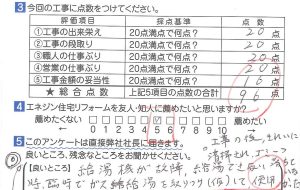 3 今回の工事に点数をつけてください。
評価項目 採点基準 点数
①工事の出来栄え 20点満点で何点? 20点
②工事の段取り 20点満点で何点? 20点
③職人の仕事ぶり 20点満点で何点? 20点
④営業の仕事ぶり 20点満点で何点? 20点
⑤工事金額の妥当性 20点満点で何点? 16点
★総合点数 上記5項目の点数の合計 96点
4 エネジン住宅リフォームを友人・知人に薦めたいと思いますか?
薦めたくない 薦めたい
0 1 2 3 4 5 6 7 8 9 10
5 このアンケートは直接弊社社長に届きます。
良いところ、残念なところをお聞かせください。
工事の後、きれいに
清掃され
【良いところ】給湯機が故障、給湯できない
時、臨時でガス給湯を取りつけ(仮)して使用